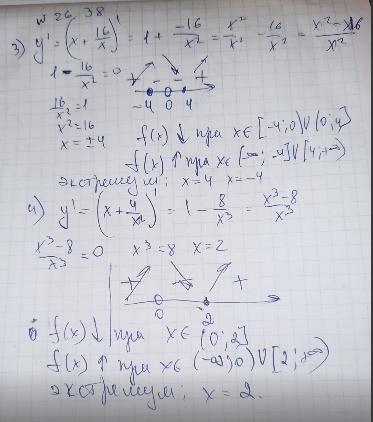 № 26.38
3) y' = (x + 16/x)' = 1 + -16/x² = x²/x² - 16/x² = x²-16/x²
1 - 16/x² = 0
+ - - +
16/x² = 1
-4 0 4
x² = 16
x = ±4
f(x) ↓ при x∈[-4;0)∪(0;4]
f(x) ↑ при x∈(-∞;-4]∪[4;+∞)
экстремум: x=4 x=-4
4) y' = (x + 4/x²)' = 1 - 8/x³ = x³-8/x³
x³-8/x³ = 0 x³=8 x=2
+ - +
0 2
f(x) ↓ при x∈(0;2]
f(x) ↑ при x∈(-∞;0)∪[2;+∞)
экстремум: x = 2.